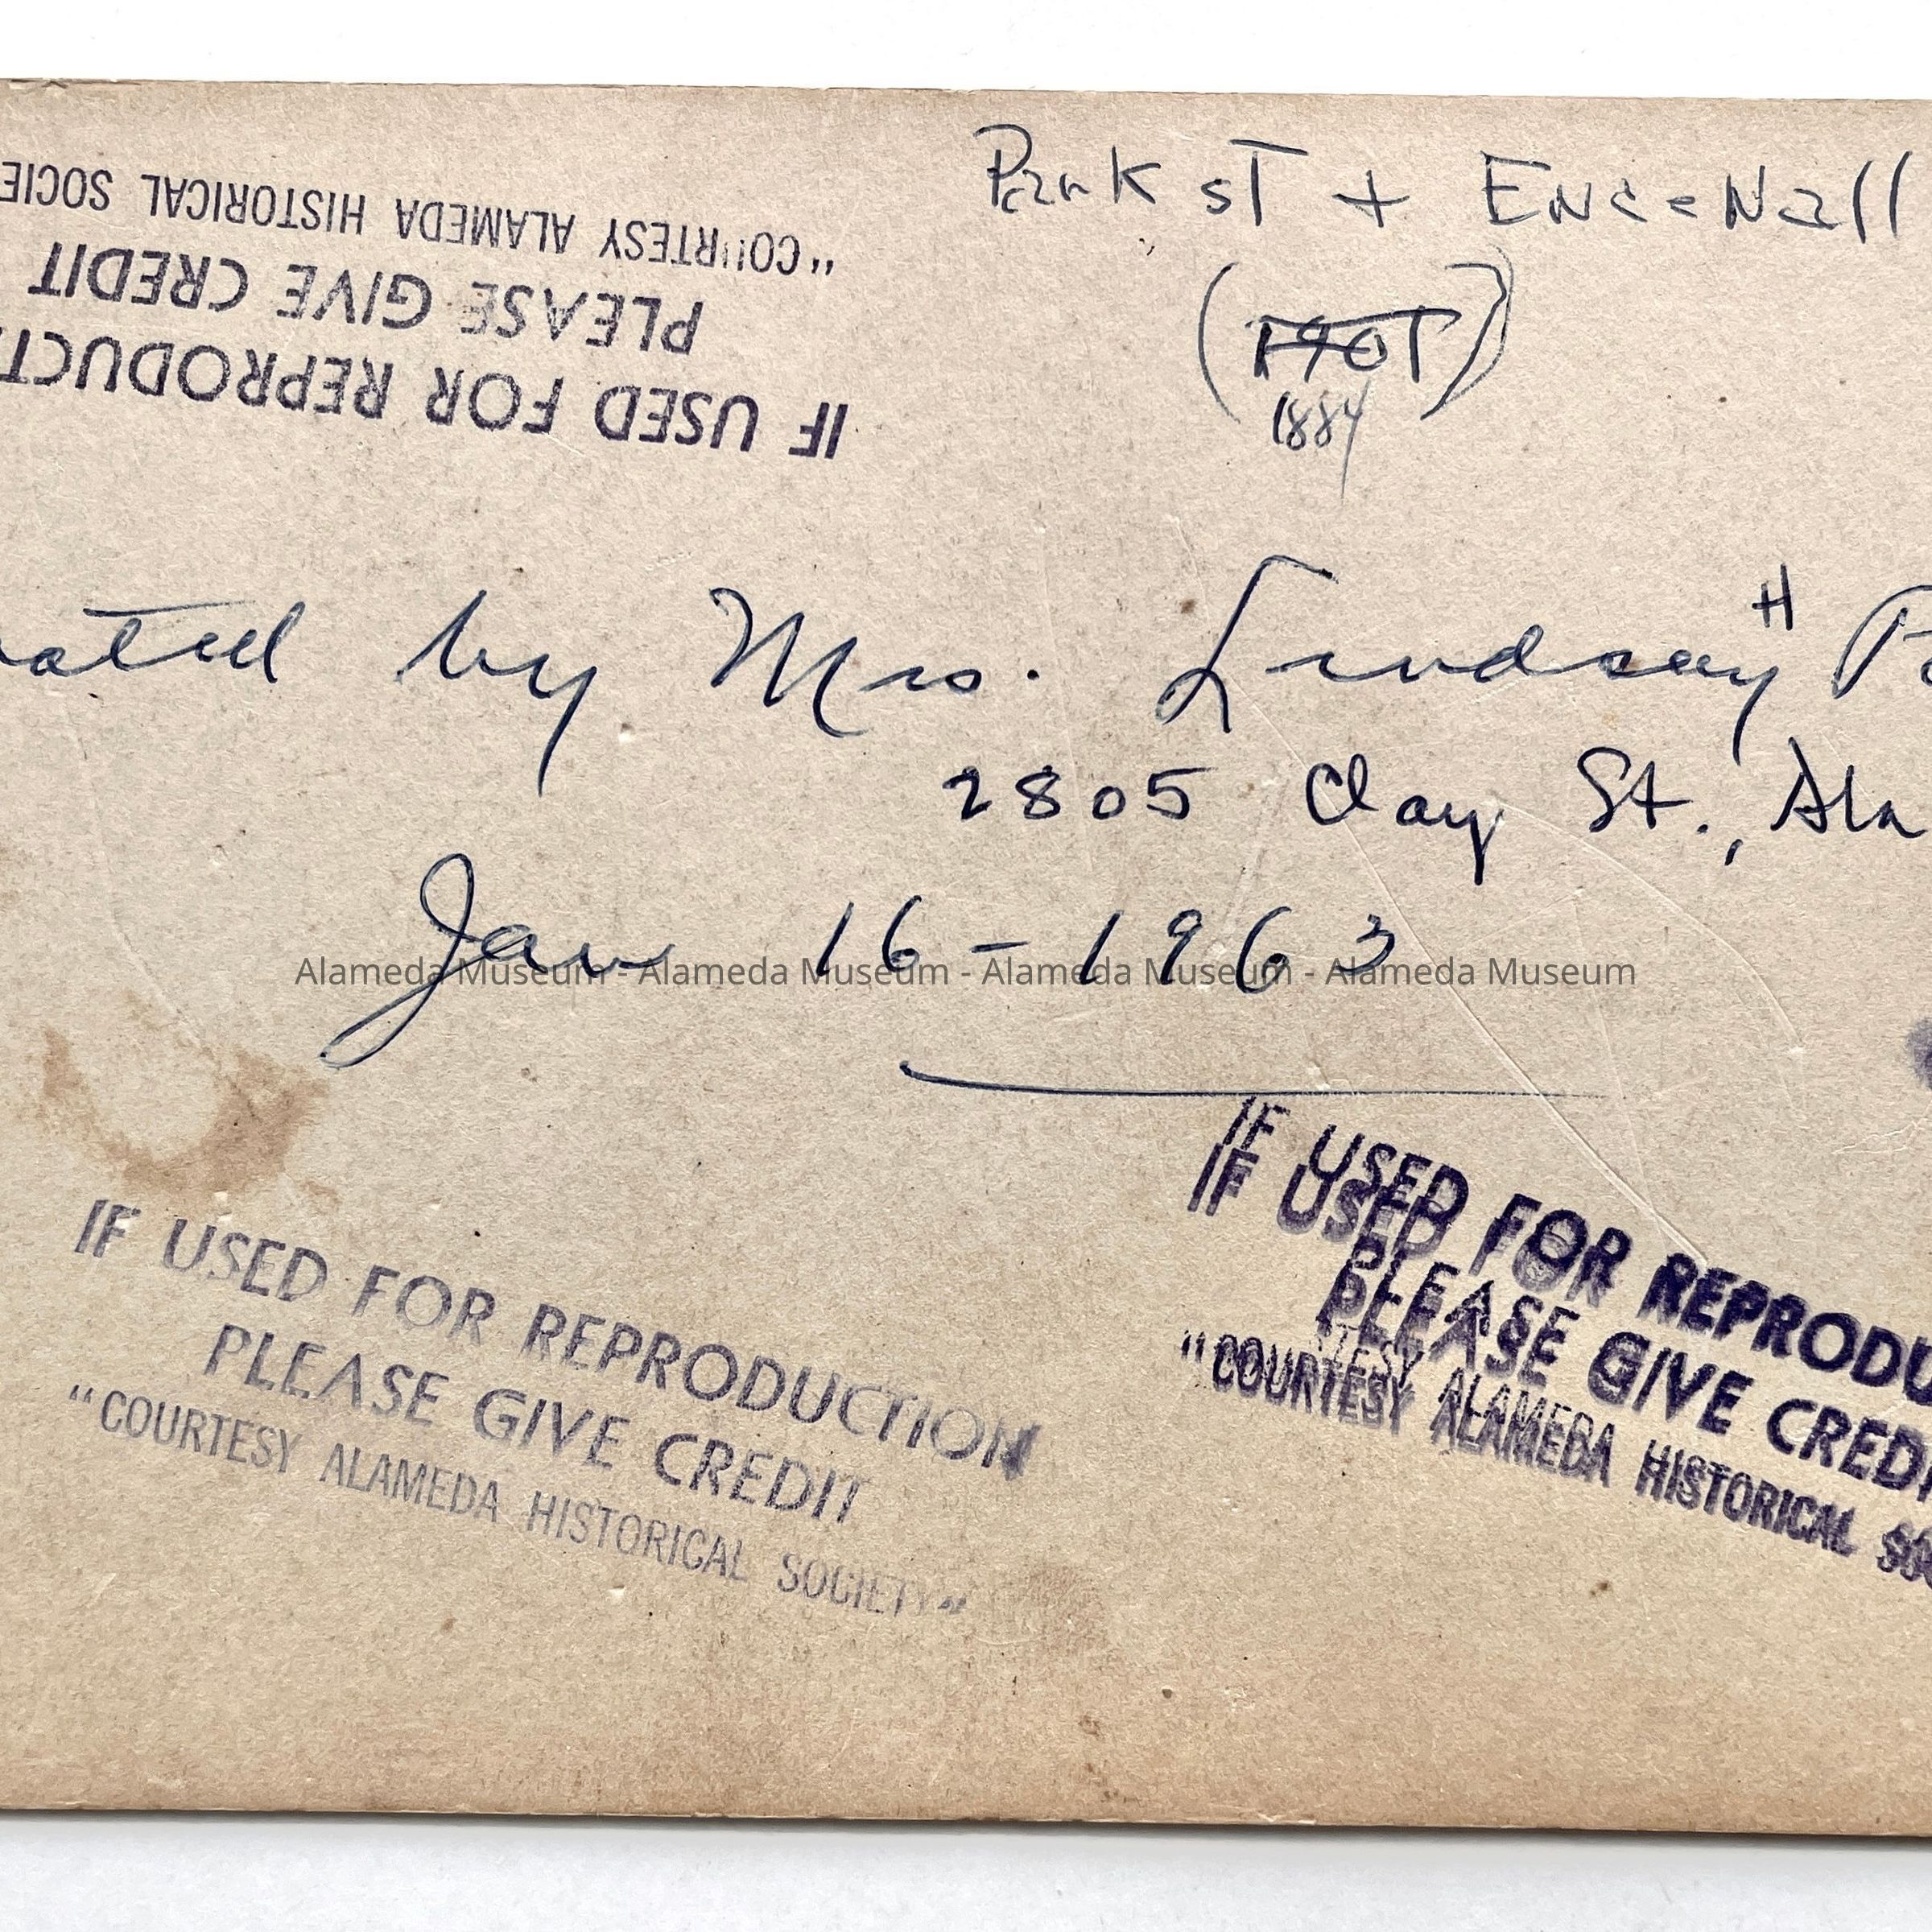 Park ST + ENceNall
(1907)
1884
"COURTESY ALAMEDA HISTORICAL SOCIE
PLEASE GIVE CREDIT
IF USED FOR REPRODUCT
ated by Mrs. Lindsay H
2805 Clay St., Ala
Jan 16-1963
Alameda Museum - Alameda Museum - Alameda Museum - Alameda Museum
IF USED FOR REPRODUCTION
PLEASE GIVE CREDIT
"COURTESY ALAMEDA HISTORICAL SOCIETY"
IF USED FOR REPRODU
PLEASE GIVE CREDI
"COURTESY ALAMEDA HISTORICAL SO